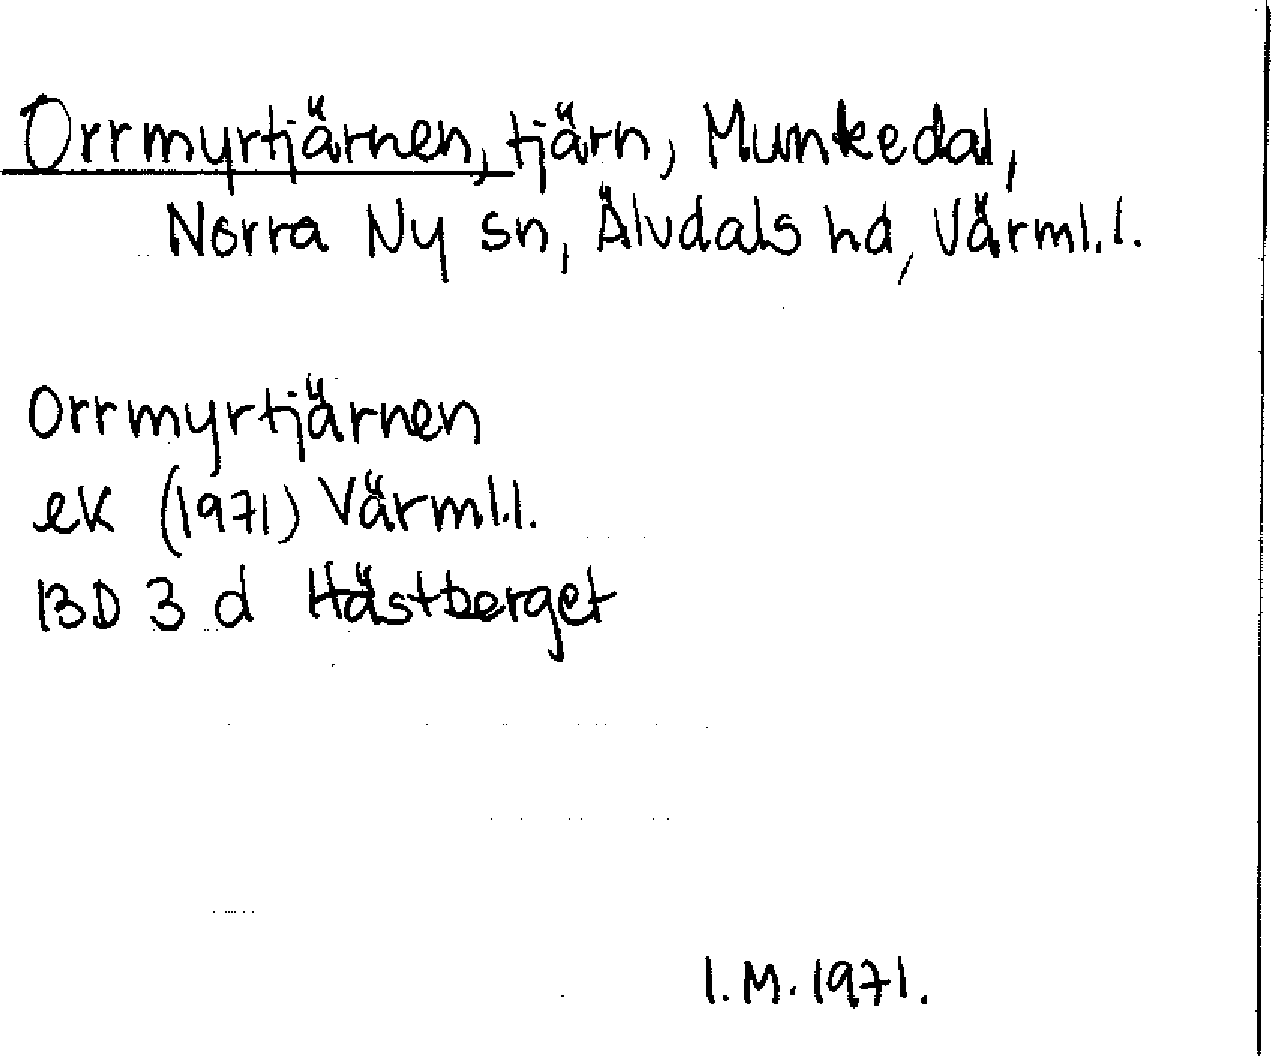 Orrmyrtjärnen, tjärn, Munkedal,
Norra Ny sn, Älvdals hd, Värml.l.
Orrmyrtjärnen
ek (1971) Värml.l.
13D 3 d Hästberget
I.M. 1971.